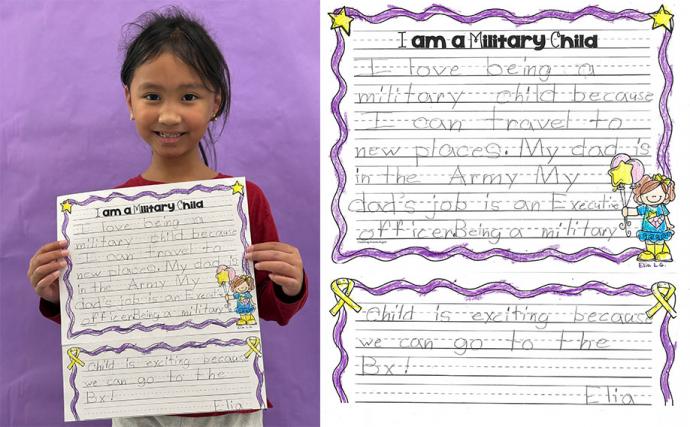 I am a Military Child
I love being a
military child because
I can travel to
new places. My dad is
in the Army My
dad's job is an Executive
officer Being a military
child is exciting because
we can go to the
Bx!
Elia
I am a Military Child
I love being a
military child because
I can travel to
new places. My dad is
in the Army My
dad's job is an Executive
officer Being a military
Elia L.G.
Child is exciting because
we can go to the
Bx!
Elia